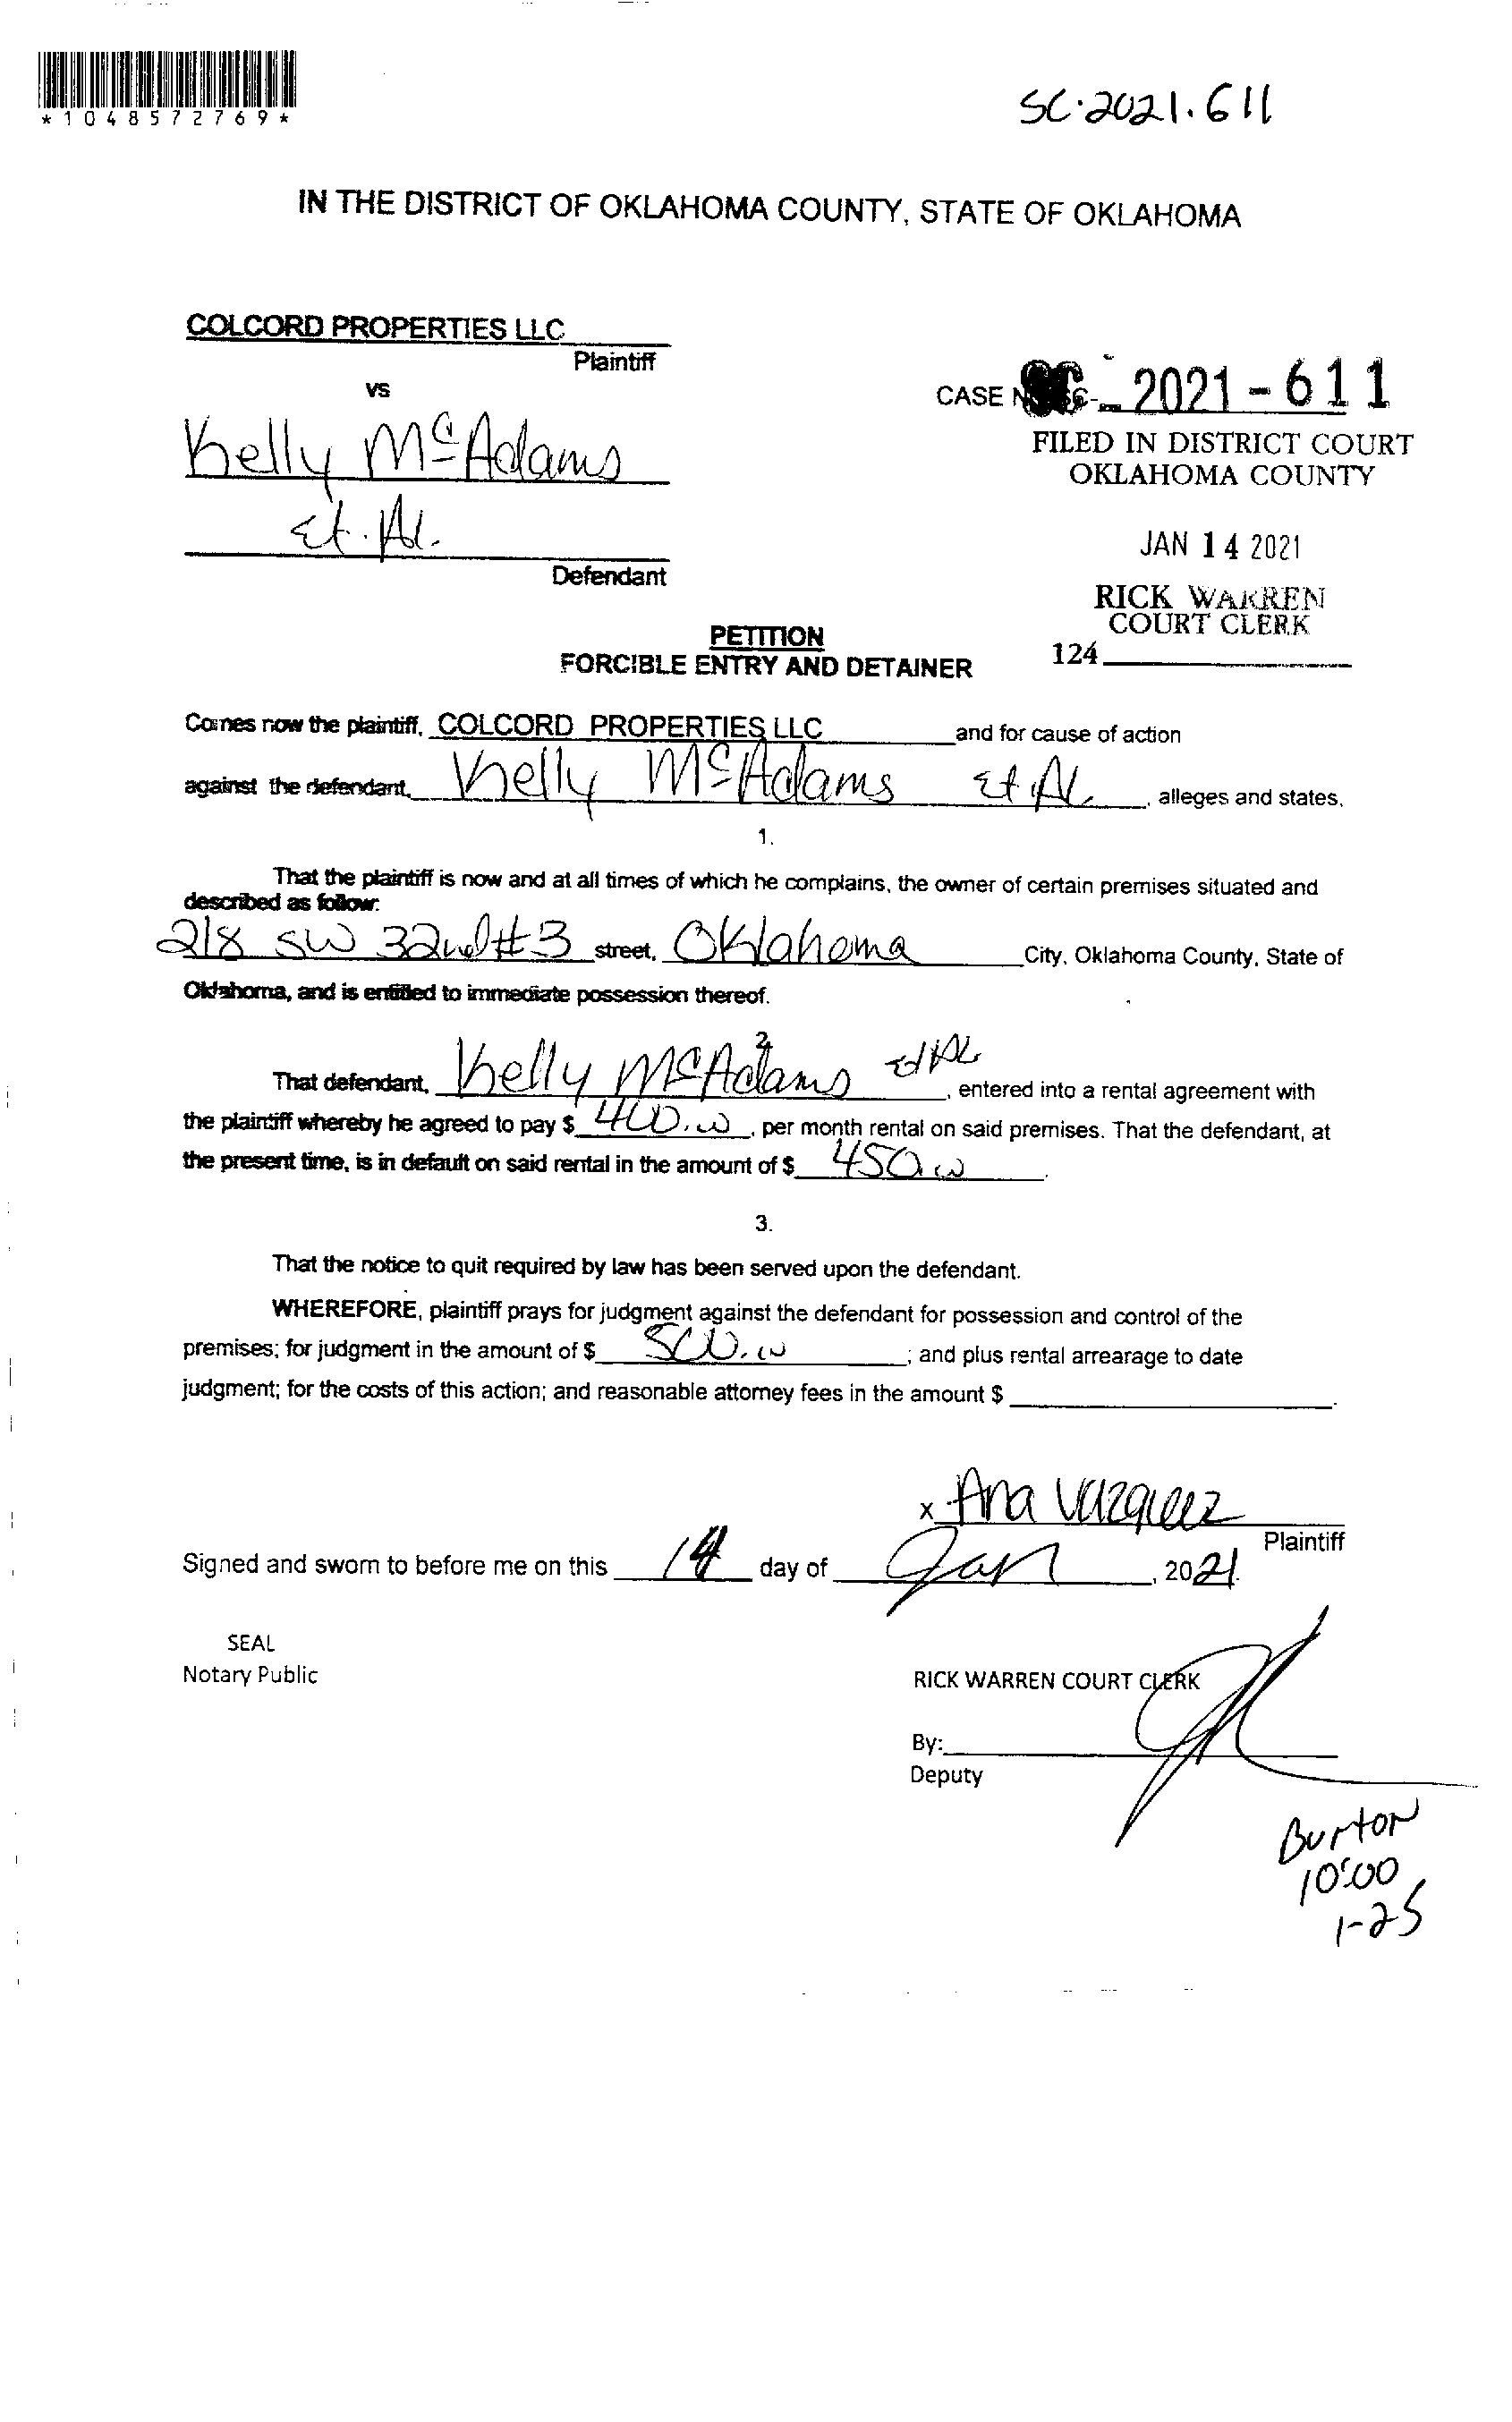 *1048572769*
SC.2021.611
IN THE DISTRICT OF OKLAHOMA COUNTY, STATE OF OKLAHOMA
COLCORD PROPERTIES LLC
Plaintiff
vs
Kelly McAdams
Et. Al.
Defendant
CASE 2021-611
FILED IN DISTRICT COURT
OKLAHOMA COUNTY
JAN 14 2021
RICK WARREN
COURT CLERK
124
PETITION
FORCIBLE ENTRY AND DETAINER
Comes now the plaintiff, COLCORD PROPERTIES LLC and for cause of action
against the defendant, Kelly McAdams Et Al, alleges and states,
1.
That the plaintiff is now and at all times of which he complains, the owner of certain premises situated and
described as follow:
218 SW 32nd #3 street, Oklahoma City, Oklahoma County, State of
Oklahoma, and is entitled to immediate possession thereof.
2
That defendant, Kelly McAdams et Al, entered into a rental agreement with
the plaintiff whereby he agreed to pay $ 400.00, per month rental on said premises. That the defendant, at
the present time, is in default on said rental in the amount of $ 450.00.
3.
That the notice to quit required by law has been served upon the defendant.
WHEREFORE, plaintiff prays for judgment against the defendant for possession and control of the
premises; for judgment in the amount of $ 500.00; and plus rental arrearage to date
judgment; for the costs of this action; and reasonable attorney fees in the amount $ .
x Ana Vazquez
Plaintiff
Signed and sworn to before me on this 14 day of Jan, 2021.
SEAL
Notary Public
RICK WARREN COURT CLERK
By:
Deputy
Burton
10:00
1-25